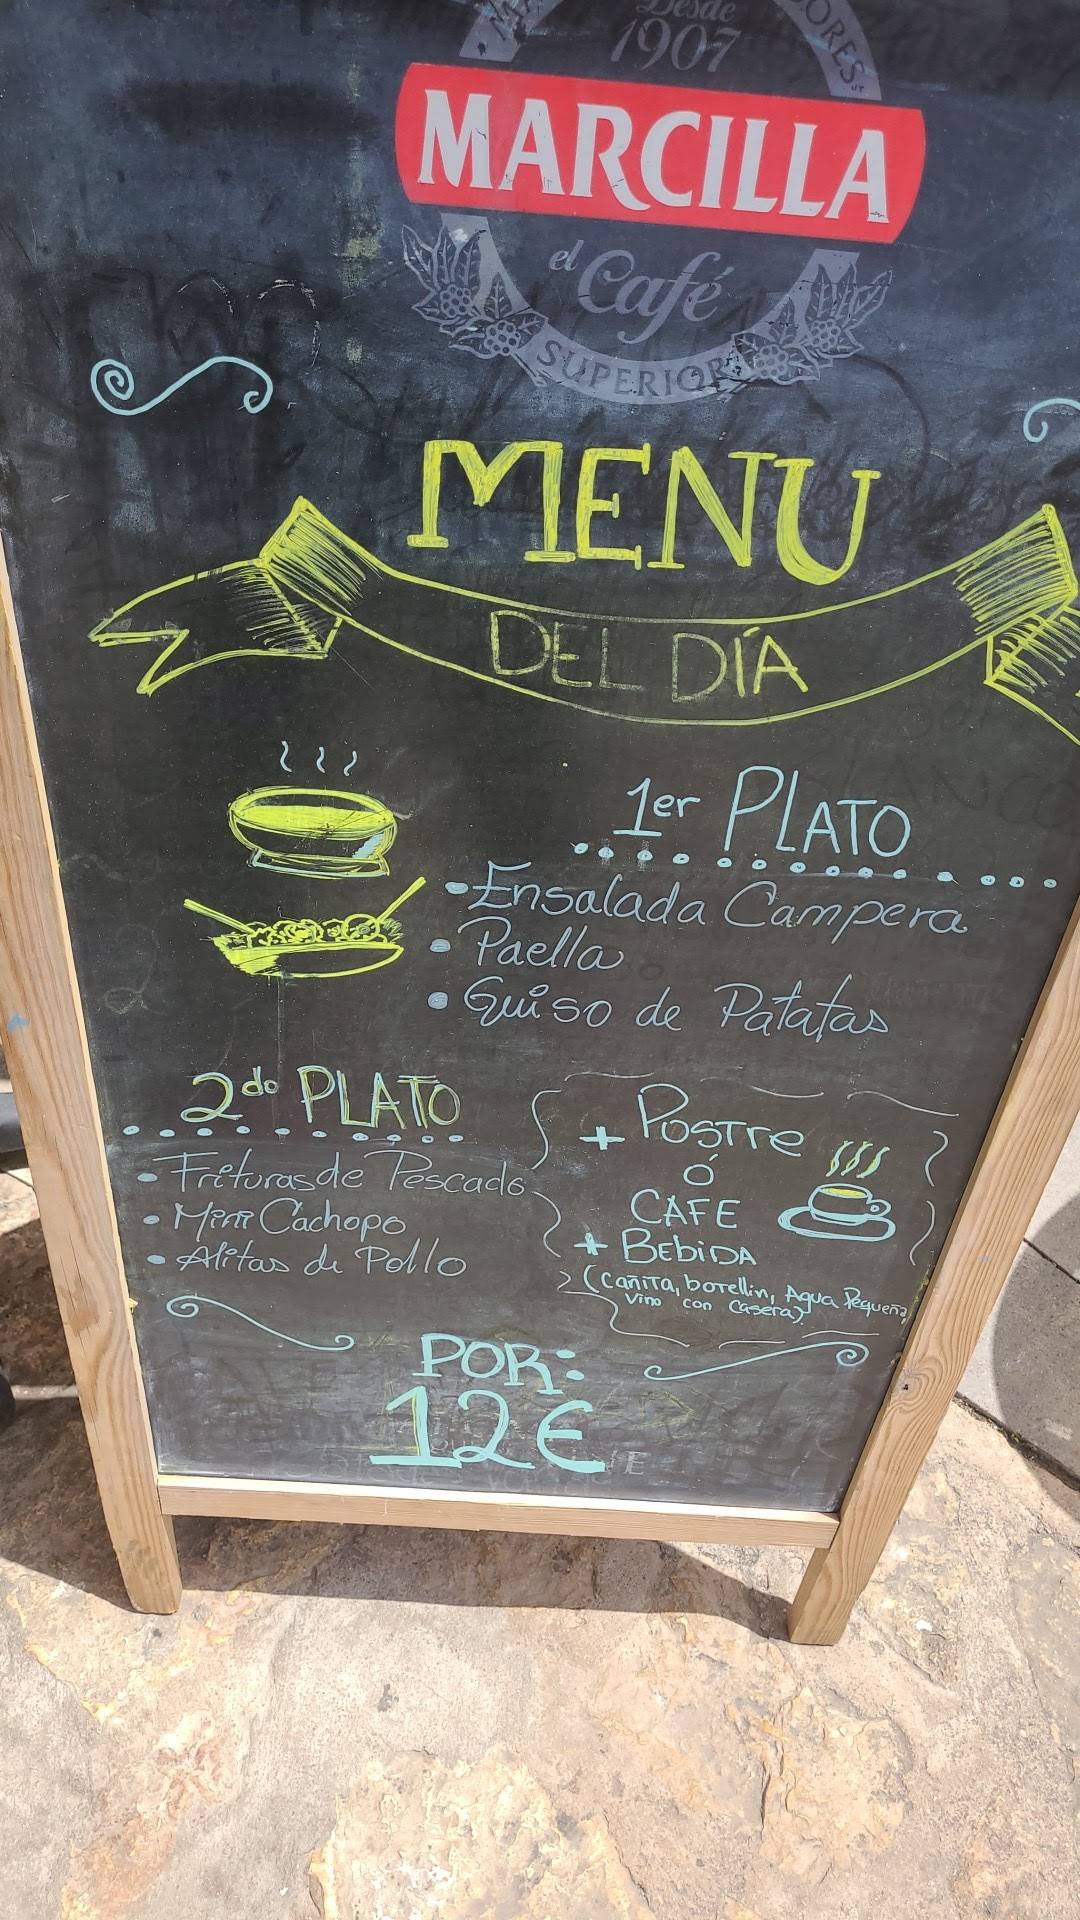 Desde
1907
MARCILLA
el
Café
SUPERIOR
MENU
DEL DÍA
1er PLATO
• Ensalada Campera
• Paella
• Guiso de Patatas
2do PLATO
• Frituras de Pescado
• Mini Cachopo
• Alitas de Pollo
+ POSTRE
ó
CAFE
+ BEBIDA
(cañita, botellin, Agua Pequeña,
Vino con Casera)
POR:
12€